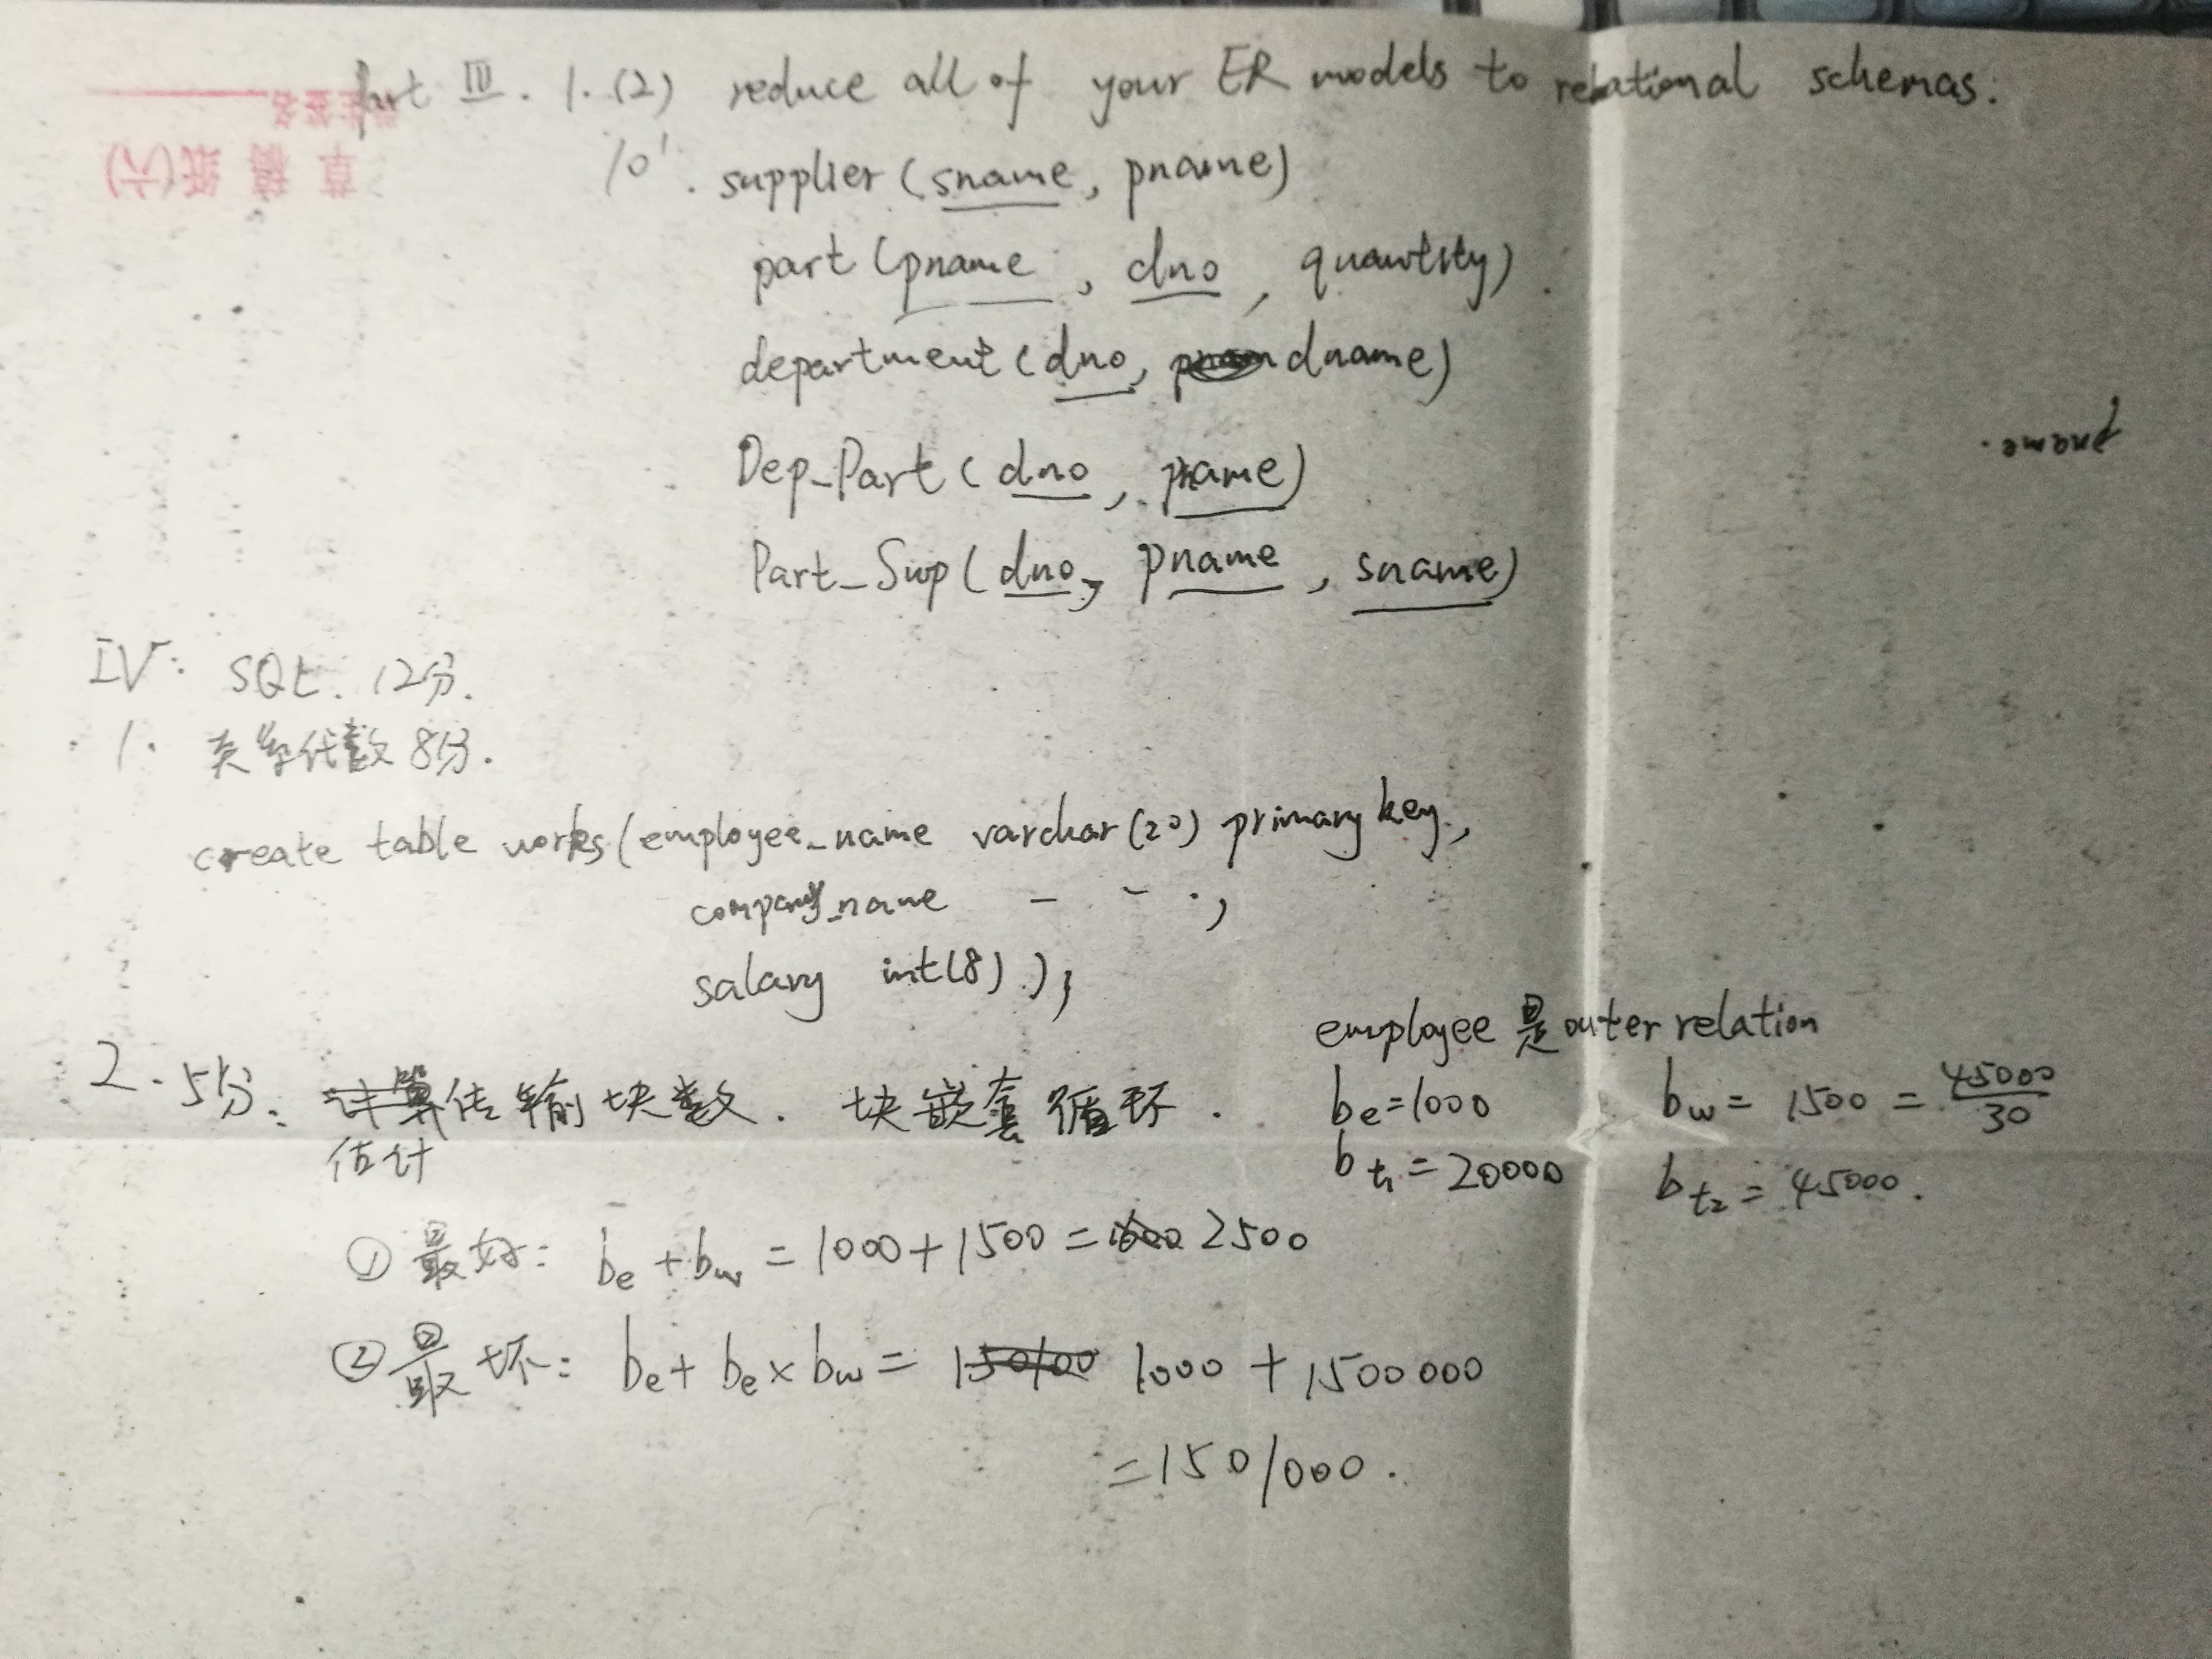 Part III. 1.(2) reduce all of your ER models to relational schemas:
学生签名
草稿纸(六)
10'. supplier (sname, pname)
part (pname, dno, quantity)
department (dno, dname)
pname.
Dep_Part (dno, pname)
Part_Sup (dno, pname, sname)
IV: SQL. 12分.
1. 关系代数 8分.
create table works (employee_name varchar(20) primary key,
company_name - - ·,
salary int(8) );
employee 是 outer relation
2. 5分. 估计传输块数. 块嵌套循环.
be=1000 bw = 1500 = 45000/30
bt1 = 20000 bt2 = 45000.
① 最好: be + bw = 1000 + 1500 = 2500
② 最坏: be + be × bw = 1000 + 1500000
= 1501000.